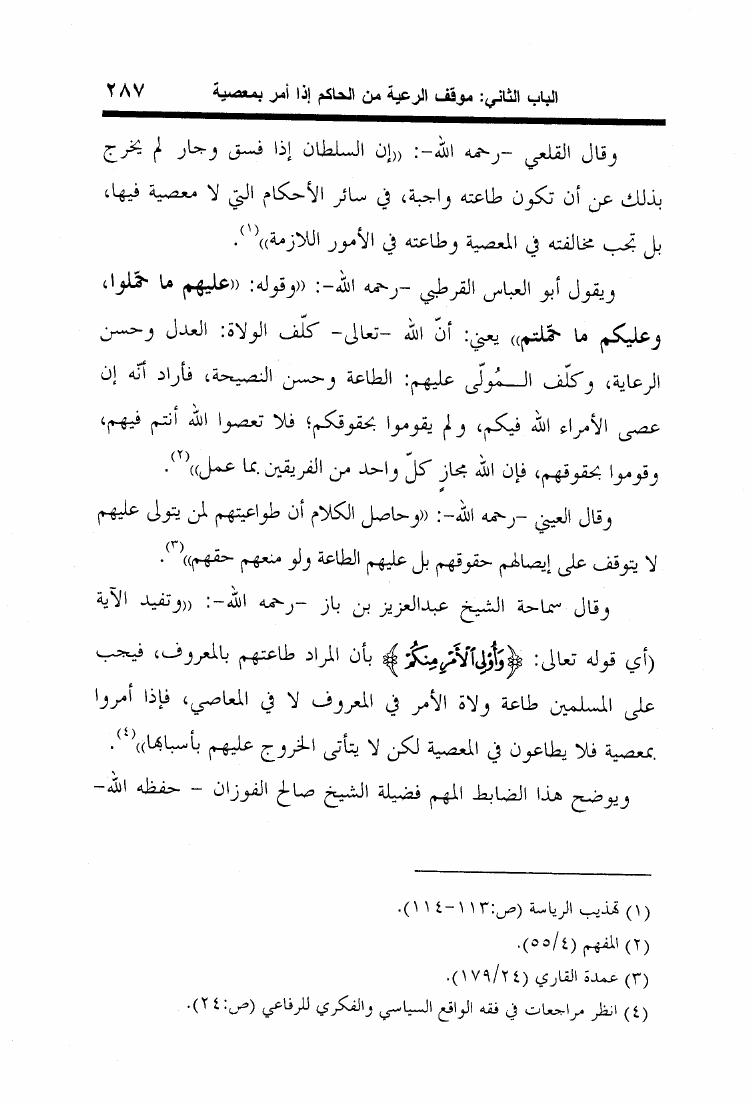 الباب الثاني: موقف الرعية من الحاكم إذا أمر بمعصية ٢٨٧
وقال القلعي -رحمه الله-: ((إن السلطان إذا فسق وجار لم يخرج
بذلك عن أن تكون طاعته واجبة، في سائر الأحكام التي لا معصية فيها،
بل تجب مخالفته في المعصية وطاعته في الأمور اللازمة))(١).
ويقول أبو العباس القرطبي -رحمه الله-: ((وقوله: ((عليهم ما حمّلوا،
وعليكم ما حمّلتم)) يعني: أنّ الله -تعالى- كلّف الولاة: العدل وحسن
الرعاية، وكلّف المُولّى عليهم: الطاعة وحسن النصيحة، فأراد أنّه إن
عصى الأمراء الله فيكم، ولم يقوموا بحقوقكم؛ فلا تعصوا الله أنتم فيهم،
وقوموا بحقوقهم، فإن الله مجازٍ كلّ واحد من الفريقين بما عمل))(٢).
وقال العيني -رحمه الله-: ((وحاصل الكلام أن طواعيتهم لمن يتولى عليهم
لا يتوقف على إيصالهم حقوقهم بل عليهم الطاعة ولو منعهم حقهم))(٣).
وقال سماحة الشيخ عبدالعزيز بن باز -رحمه الله-: ((وتفيد الآية
(أي قوله تعالى: ﴿وَأُوْلِي ٱلۡأَمۡرِ مِنكُمۡ﴾ بأن المراد طاعتهم بالمعروف، فيجب
على المسلمين طاعة ولاة الأمر في المعروف لا في المعاصي، فإذا أمروا
بمعصية فلا يطاعون في المعصية لكن لا يتأتى الخروج عليهم بأسبابها))(٤).
ويوضح هذا الضابط المهم فضيلة الشيخ صالح الفوزان - حفظه الله-
(١) تهذيب الرياسة (ص:١١٣-١١٤).
(٢) المفهم (٥٥/٤).
(٣) عمدة القاري (١٧٩/٢٤).
(٤) انظر مراجعات في فقه الواقع السياسي والفكري للرفاعي (ص:٢٤).